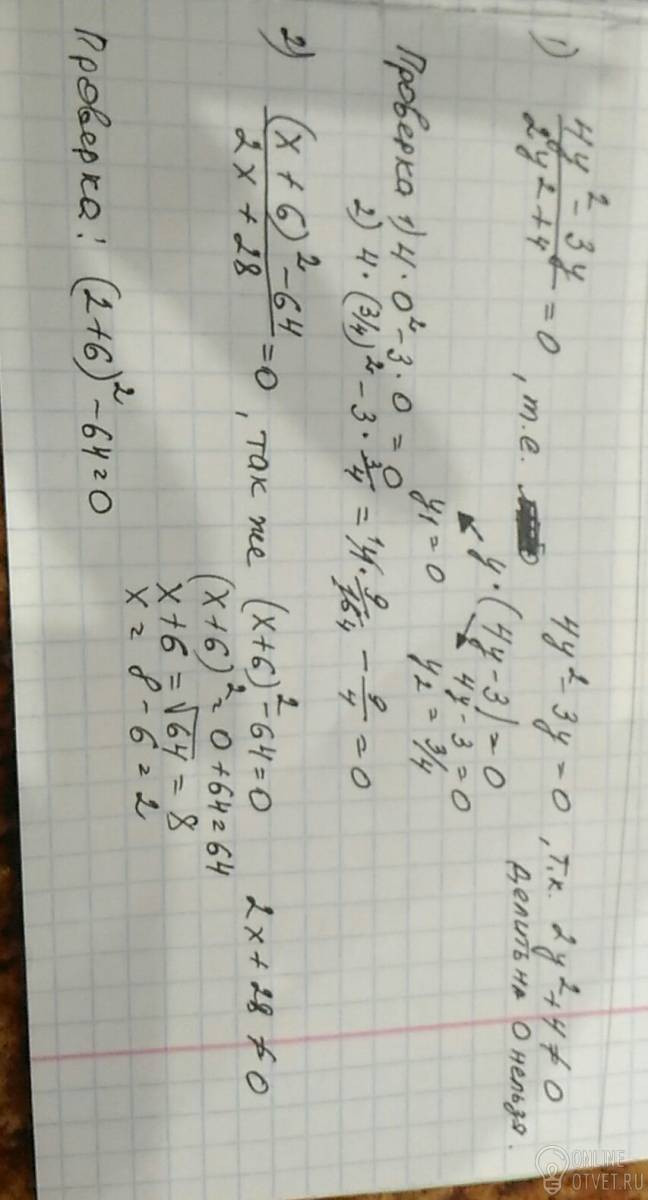 1) (4y² - 3y)/(2y² + 4) = 0 , т.е. 4y² - 3y = 0 , т.к. 2y² + 4 ≠ 0
делить на 0 нельзя.
y · (4y - 3) = 0
4y - 3 = 0
y₁ = 0 y₂ = 3/4
Проверка 1) 4 · 0² - 3 · 0 = 0
2) 4 · (3/4)² - 3 · 3/4 = 4 · 9/16 - 9/4 = 0
2) ((x + 6)² - 64)/(2x + 28) = 0 , так же (x+6)² - 64 = 0 2x + 28 ≠ 0
(x+6)² = 0 + 64 = 64
x + 6 = √64 = 8
x = 8 - 6 = 2
Проверка: (2+6)² - 64 = 0
ONLINE
OTVET.RU